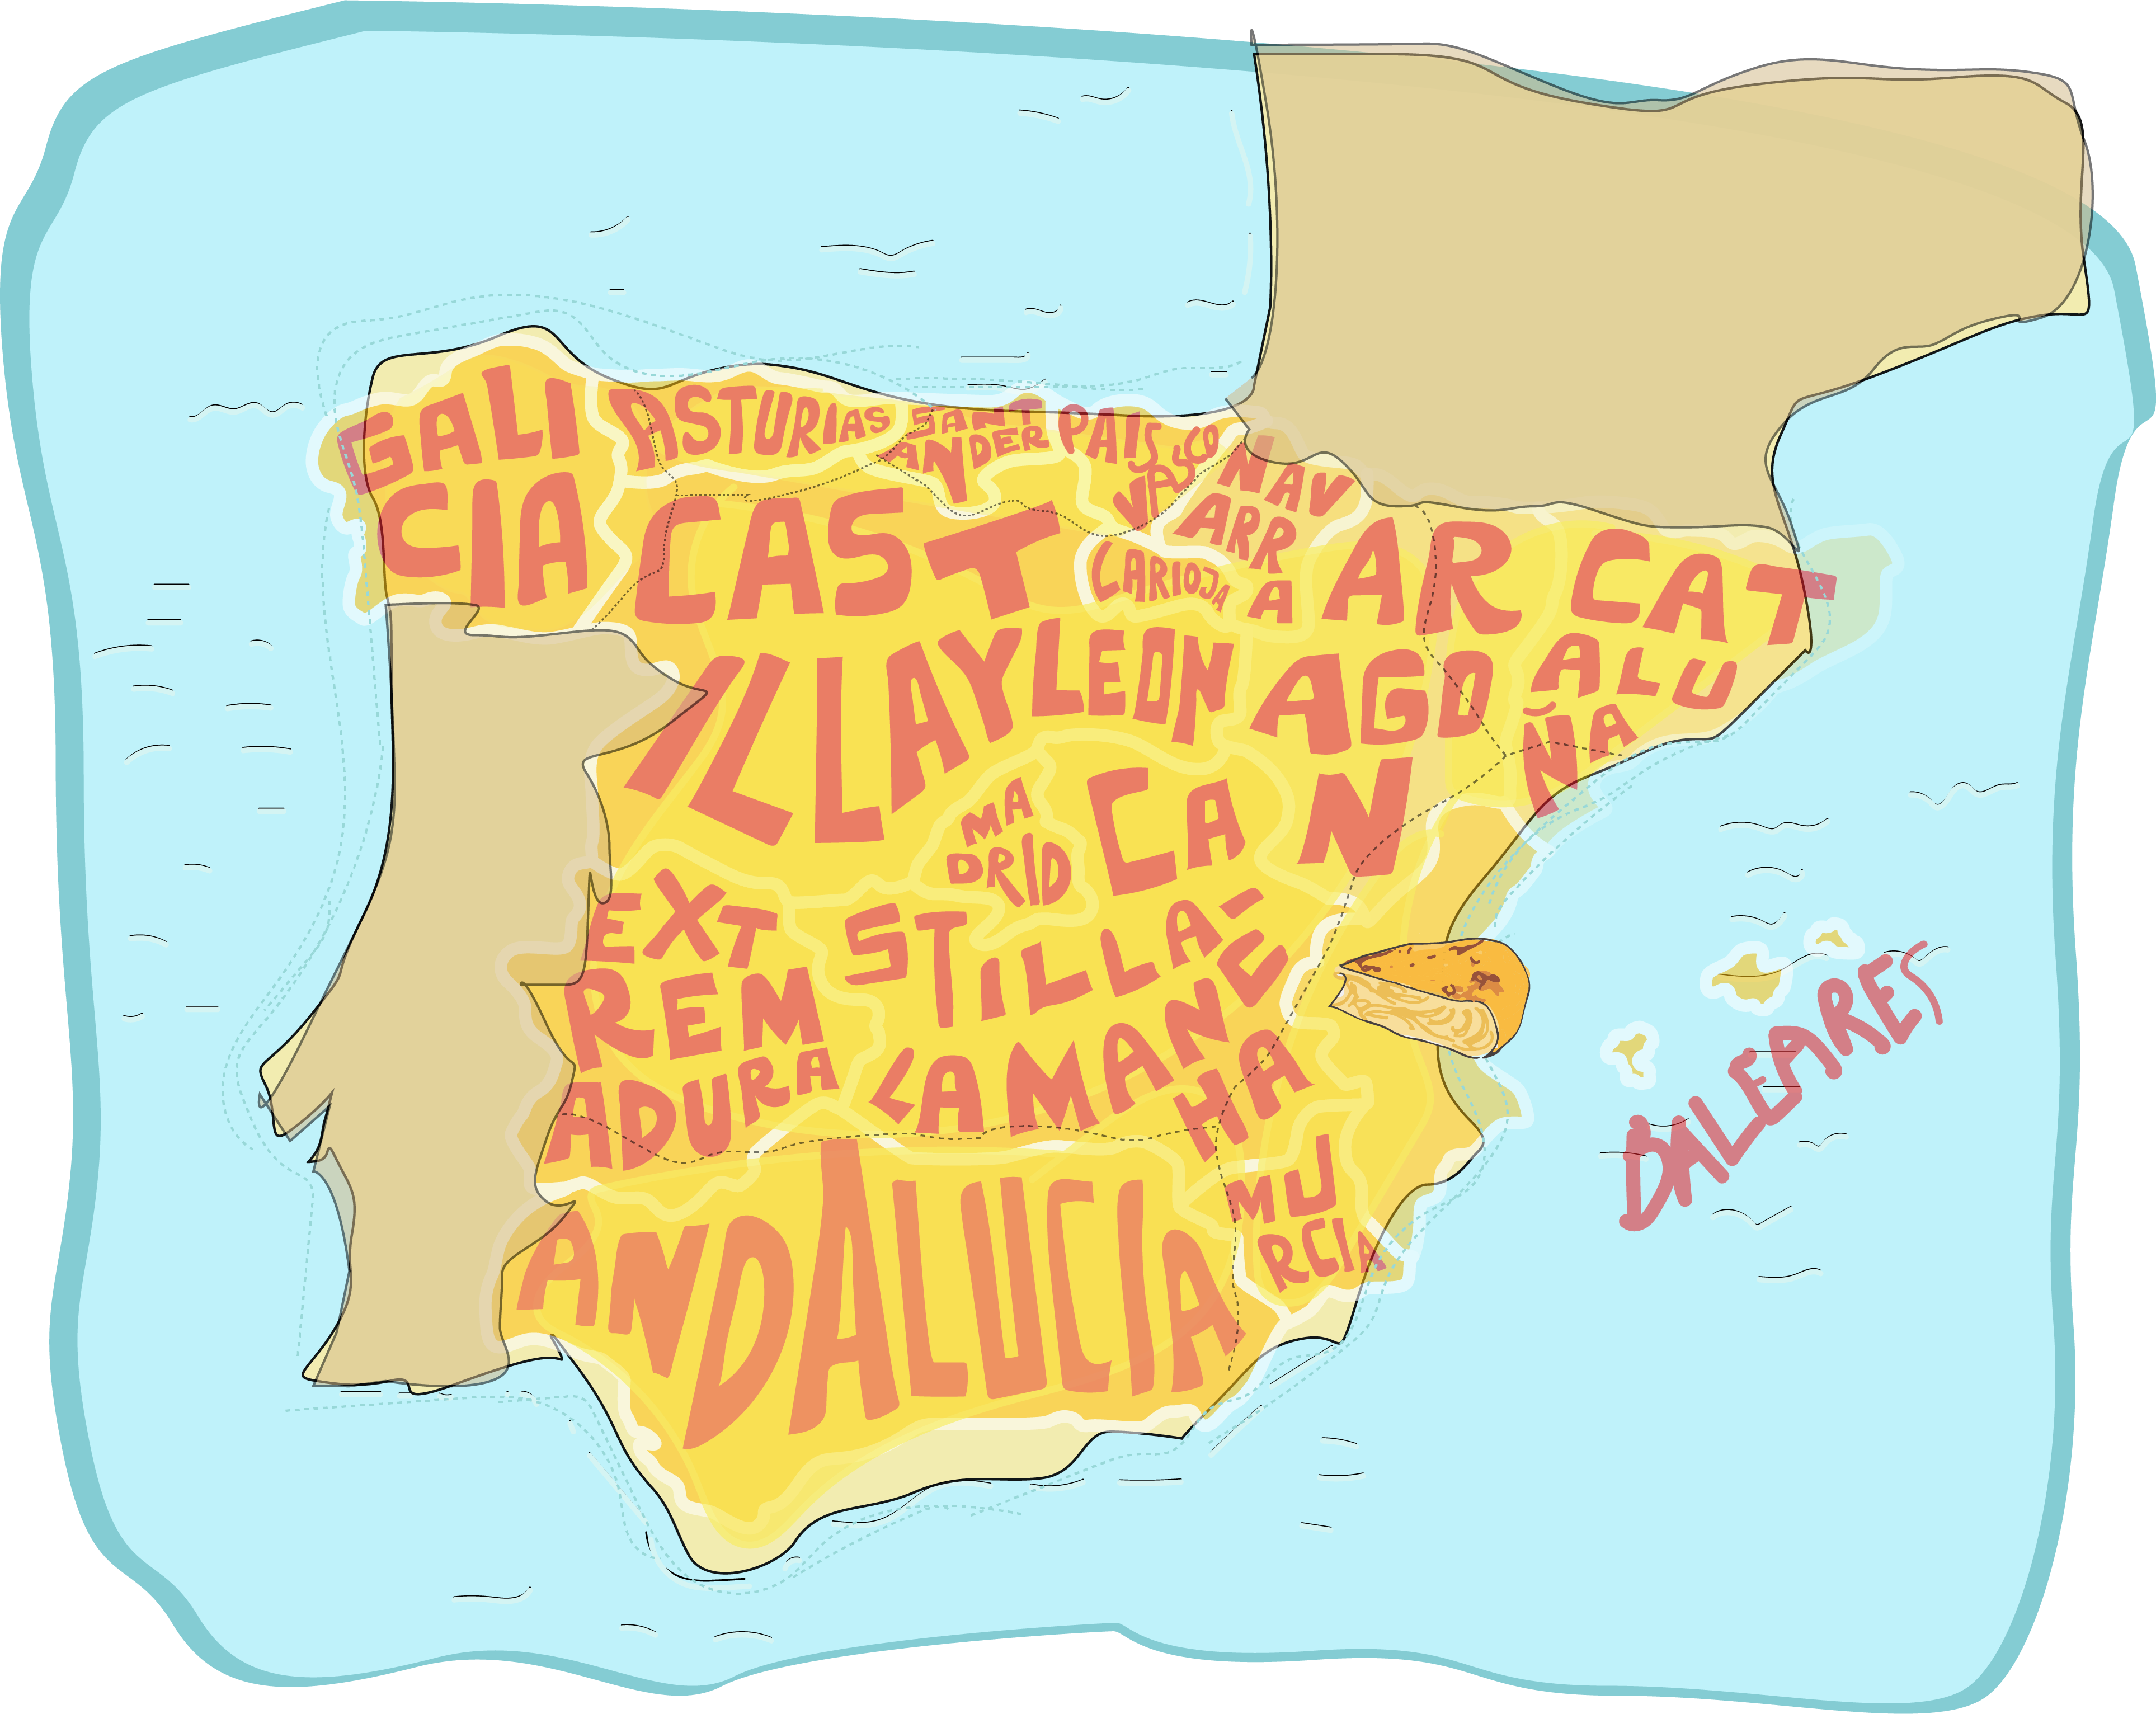 GALI
CIA
ASTURIAS
SANT
ANDER
PAIS
VASCO
NAV
ARR
A
LARIOJA
CAST
ILLAYLEON
AR
AGO
N
CAT
ALU
ÑA
MA
DRID
CA
STILLA
LAMANCHA
EXT
REM
ADURA
ANDALUCIA
MU
RCIA
BALEARES